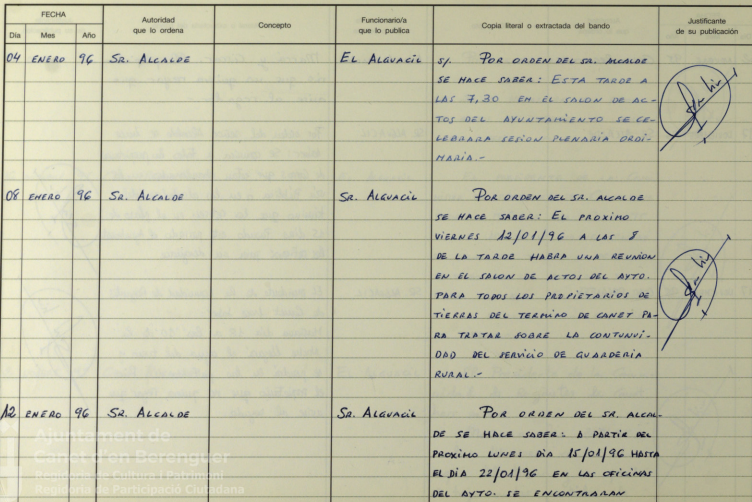 FECHA
Día Mes Año
Autoridad
que lo ordena
Concepto
Funcionario/a
que lo publica
Copia literal o extractada del bando
Justificante
de su publicación
04 ENERO 96 SR. ALCALDE EL ALGUACIL S/. POR ORDEN DEL SR. ALCALDE
SE HACE SABER: ESTA TARDE A
LAS 7,30 EN EL SALON DE AC-
TOS DEL AYUNTAMIENTO SE CE-
LEBRARA SESION PLENARIA ORDI-
NARIA.-
08 ENERO 96 SR. ALCALDE SR. ALGUACIL POR ORDEN DEL SR. ALCALDE
SE HACE SABER: EL PROXIMO
VIERNES 12/01/96 A LAS 8
DE LA TARDE HABRA UNA REUNION
EN EL SALON DE ACTOS DEL AYTO.
PARA TODOS LOS PROPIETARIOS DE
TIERRAS DEL TERMINO DE CANET PA-
RA TRATAR SOBRE LA CONTUNUI-
DAD DEL SERVICIO DE GUARDERIA
RURAL.-
12 ENERO 96 SR. ALCALDE SR. ALGUACIL POR ORDEN DEL SR. ALCAL-
DE SE HACE SABER: A PARTIR DEL
PROXIMO LUNES DIA 15/01/96 HASTA
EL DIA 22/01/96 EN LAS OFICINAS
DEL AYTO. SE ENCONTRARAN
Ajuntament de
Canet d'en Berenguer
Regidoria de Cultura i Patrimoni
Regidoria de Participació Ciutadana